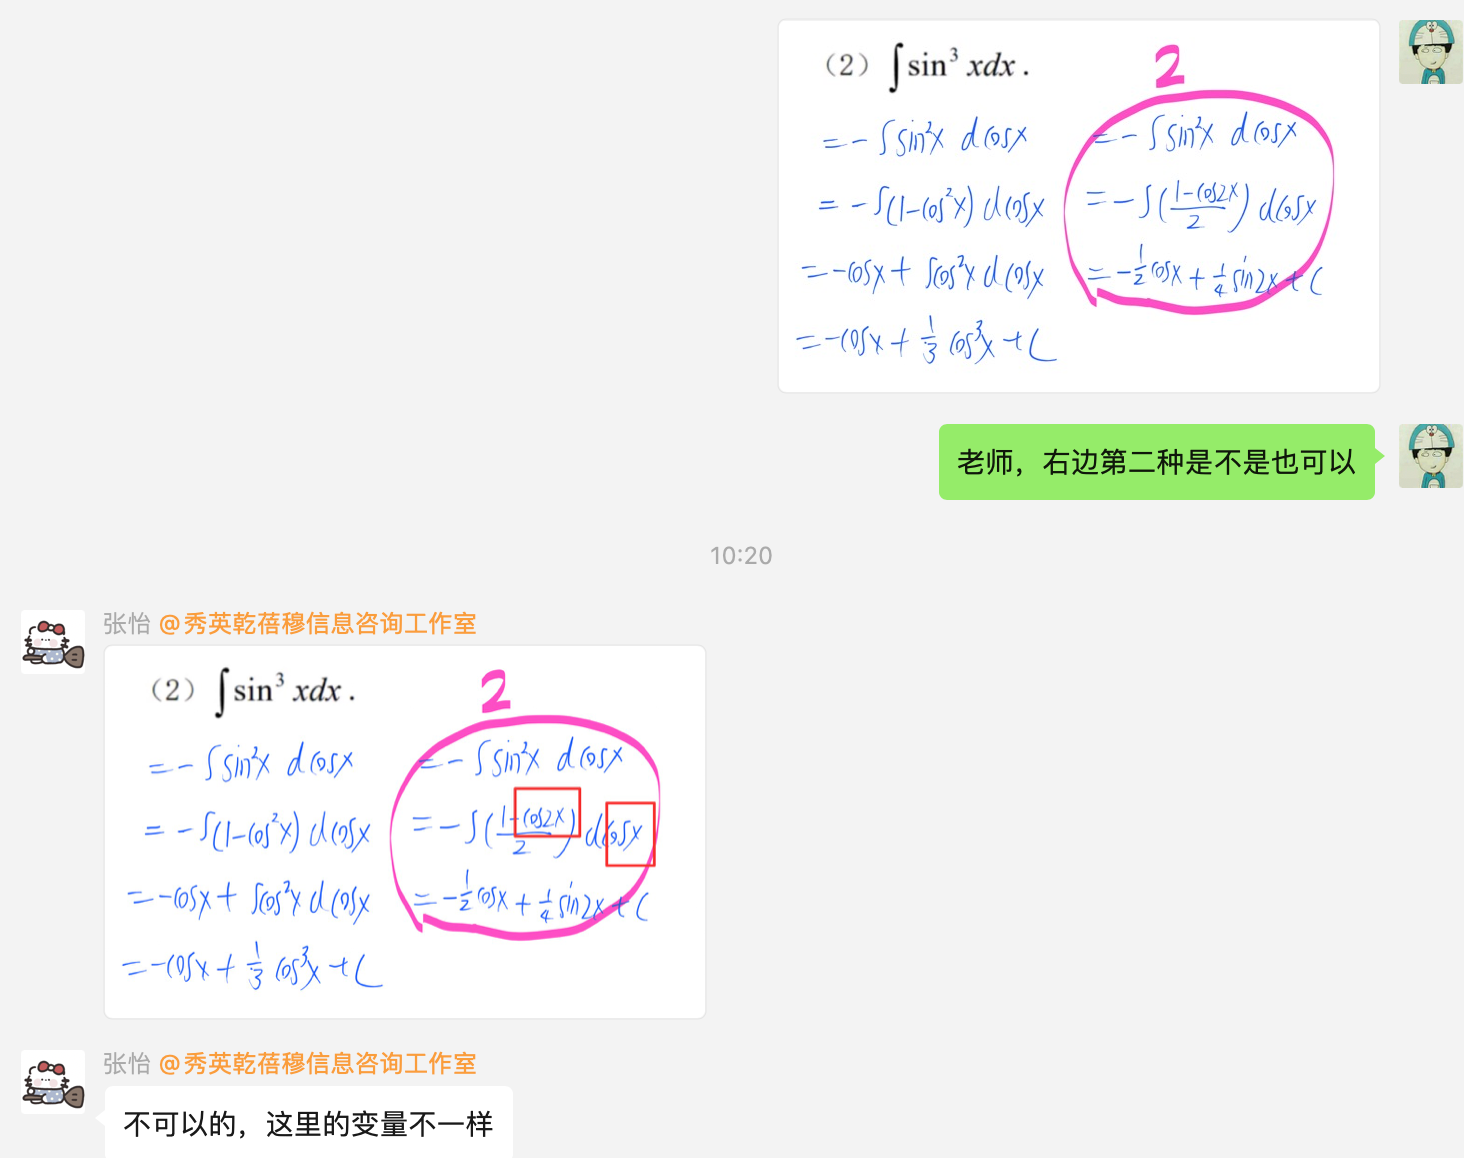 (2) ∫sin³ xdx .
2
= - ∫sin²x dcosx
= - ∫(1-cos²x) dcosx
= -cosx + ∫cos²x dcosx
= -cosx + 1/3 cos³x + C
= - ∫sin²x dcosx
= - ∫(1-cos2x/2) dcosx
= -1/2 cosx + 1/4 sin2x + C
老师，右边第二种是不是也可以
10:20
张怡 @秀英乾蓓穆信息咨询工作室
(2) ∫sin³ xdx .
2
= - ∫sin²x dcosx
= - ∫(1-cos²x) dcosx
= -cosx + ∫cos²x dcosx
= -cosx + 1/3 cos³x + C
= - ∫sin²x dcosx
= - ∫(1-cos2x/2) dcosx
= -1/2 cosx + 1/4 sin2x + C
张怡 @秀英乾蓓穆信息咨询工作室
不可以的，这里的变量不一样